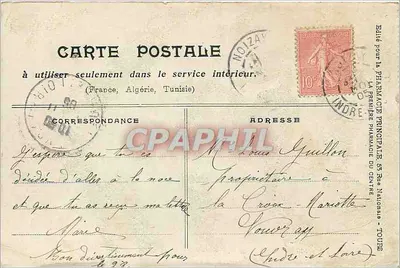 CARTE POSTALE
à utiliser seulement dans le service intérieur.
(France, Algérie, Tunisie)
CORRESPONDANCE
J'espère que tu es
décidé d'aller à la noce
et que tu as reçu ma lettre
Marie
Mon divertissement pour
le 27
ADRESSE
M. Louis Guillon
propriétaire à
la Croix-Mariotte
Vouvray
(Indre et Loire)
NOIZAY
10
INDRE
Edité pour la PHARMACIE PRINCIPALE, 53 Rue Nationale - TOURS
LA PREMIÈRE PHARMACIE DU CENTRE
CPAPHIL